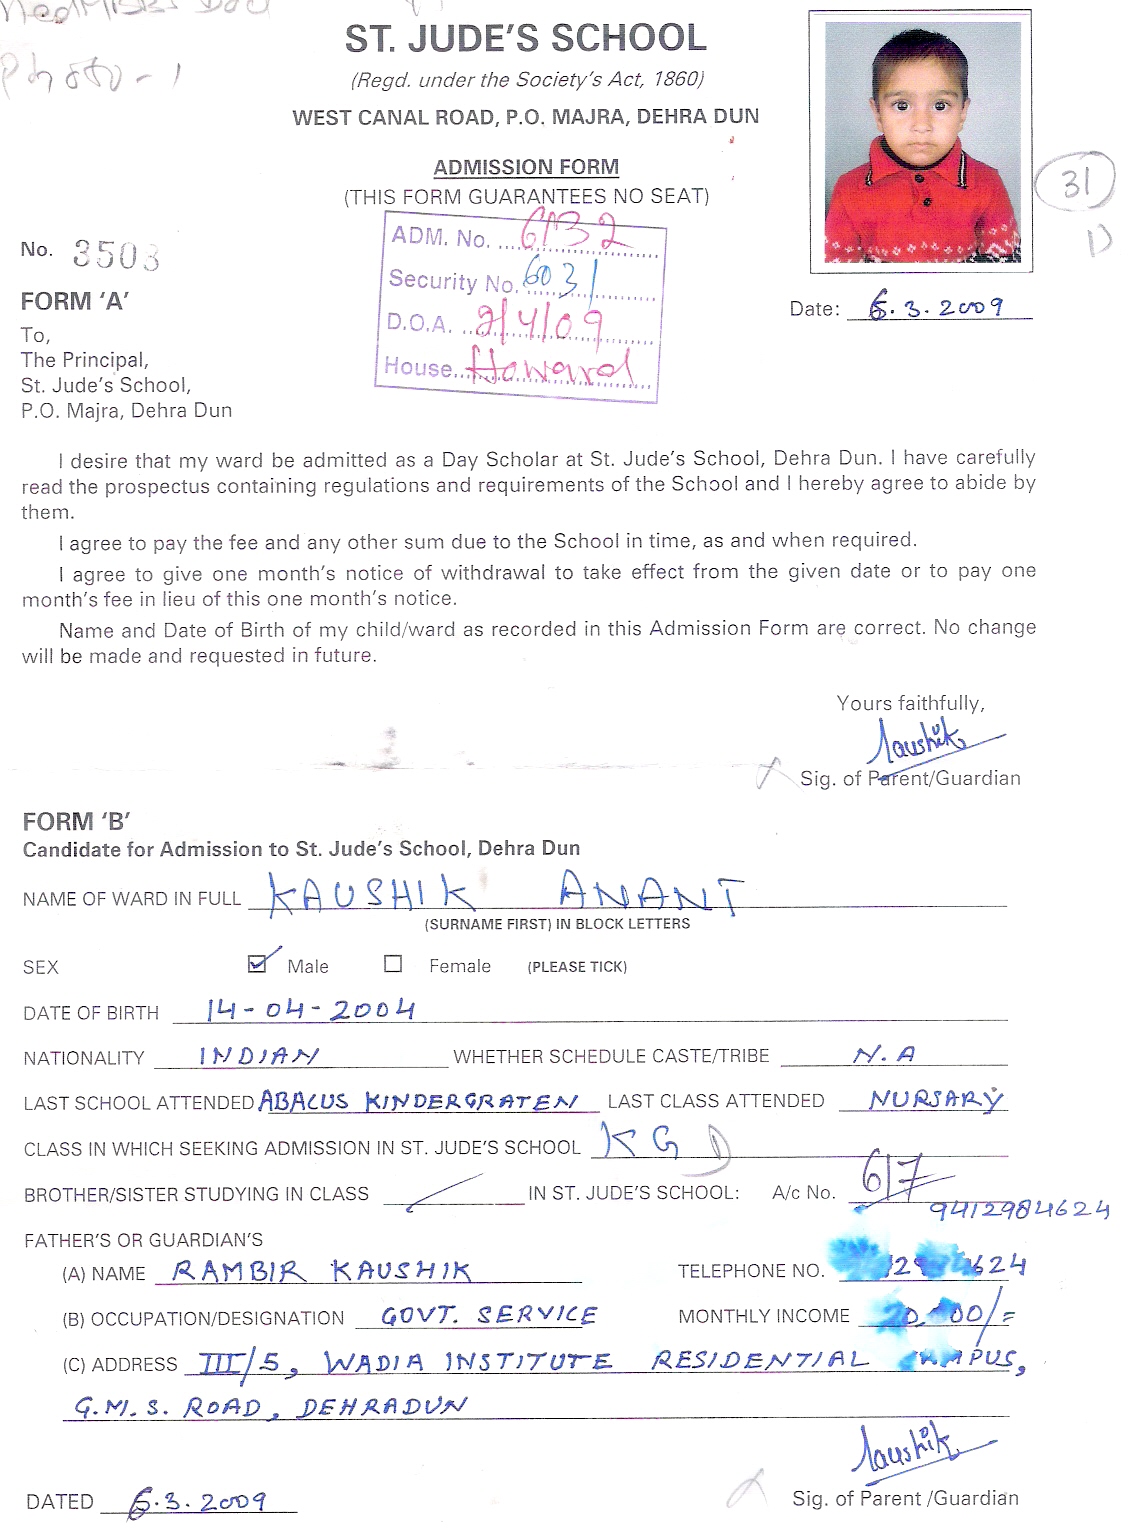 Photo - 1
ST. JUDE'S SCHOOL
(Regd. under the Society's Act, 1860)
WEST CANAL ROAD, P.O. MAJRA, DEHRA DUN
ADMISSION FORM
(THIS FORM GUARANTEES NO SEAT)
31
D
ADM. No. 6132
Security No. 6031
D.O.A. 2/4/09
House Howard
No. 3503
Date: 6.3.2009
FORM 'A'
To,
The Principal,
St. Jude's School,
P.O. Majra, Dehra Dun
I desire that my ward be admitted as a Day Scholar at St. Jude's School, Dehra Dun. I have carefully
read the prospectus containing regulations and requirements of the School and I hereby agree to abide by
them.
I agree to pay the fee and any other sum due to the School in time, as and when required.
I agree to give one month's notice of withdrawal to take effect from the given date or to pay one
month's fee in lieu of this one month's notice.
Name and Date of Birth of my child/ward as recorded in this Admission Form are correct. No change
will be made and requested in future.
Yours faithfully,
Kaushik
Sig. of Parent/Guardian
FORM 'B'
Candidate for Admission to St. Jude's School, Dehra Dun
NAME OF WARD IN FULL KAUSHIK ANANT
(SURNAME FIRST) IN BLOCK LETTERS
SEX Male Female (PLEASE TICK)
DATE OF BIRTH 14-04-2004
NATIONALITY INDIAN WHETHER SCHEDULE CASTE/TRIBE N.A
LAST SCHOOL ATTENDED ABACUS KINDERGRATEN LAST CLASS ATTENDED NURSARY
CLASS IN WHICH SEEKING ADMISSION IN ST. JUDE'S SCHOOL KG D
BROTHER/SISTER STUDYING IN CLASS IN ST. JUDE'S SCHOOL: A/c No. 617
9412984624
FATHER'S OR GUARDIAN'S
(A) NAME RAMBIR KAUSHIK TELEPHONE NO.
(B) OCCUPATION/DESIGNATION GOVT. SERVICE MONTHLY INCOME
(C) ADDRESS III/5, WADIA INSTITUTE RESIDENTIAL CAMPUS,
G.M.S. ROAD, DEHRADUN
Kaushik
DATED 6.3.2009 Sig. of Parent /Guardian